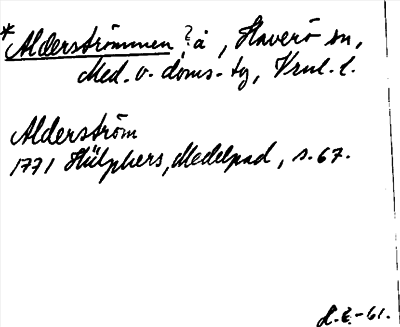 *Alderströmmen, ? å, Haverö sn,
Med. v. doms- tg, Vrnl. l.
Alderström
1771 Hülphers, Medelpad, s. 67.
H.E.-61.